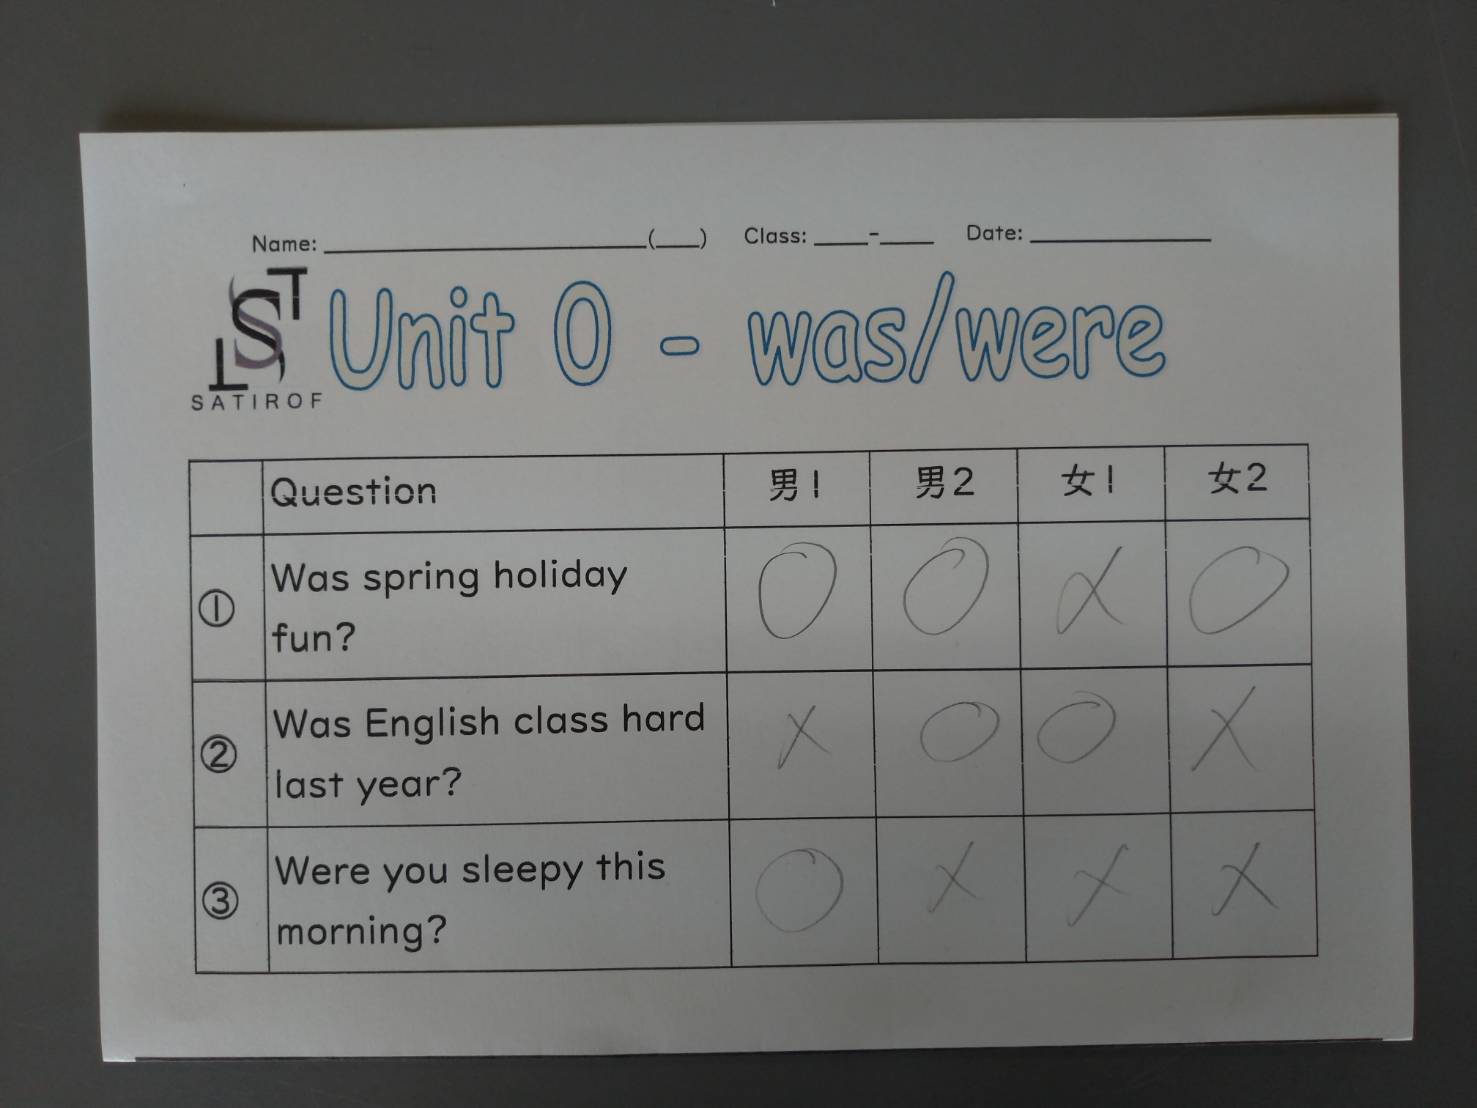 Name: ____________________(____) Class: _____-_____ Date: ______________
Unit 0 - was/were
SATIROF
Question 男1 男2 女1 女2
① Was spring holiday
fun? ○ ○ × ○
② Was English class hard
last year? × ○ ○ ×
③ Were you sleepy this
morning? ○ × × ×